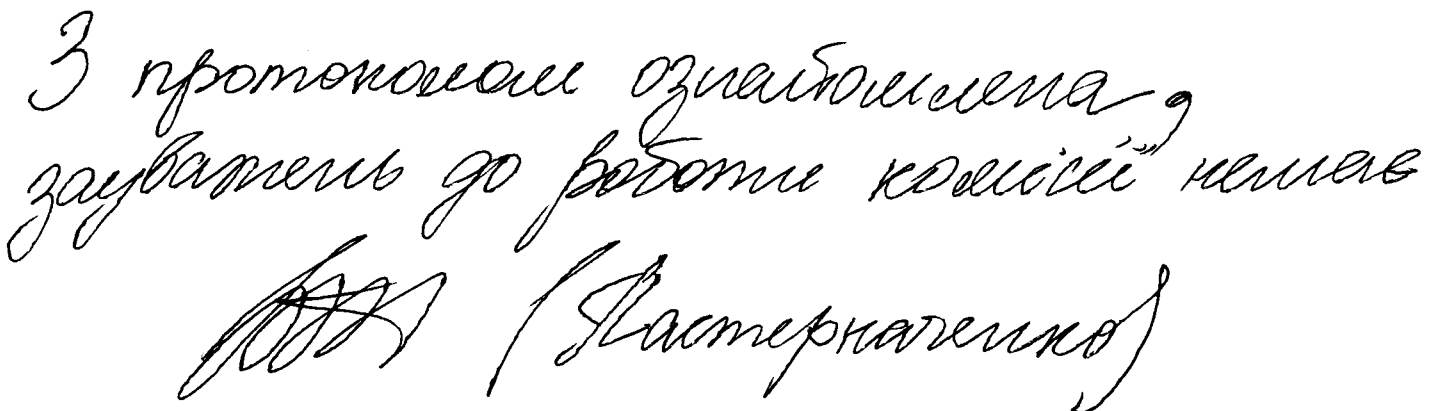 З протоколом ознайомлена,
зауважень до роботи комісії немає
(Пастерначенко)